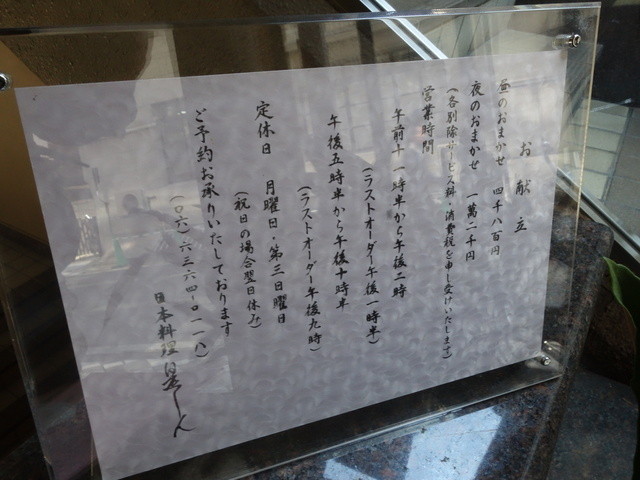 お献立
昼のおまかせ 四千八百円
夜のおまかせ 一萬二千円
(各別除サービス料・消費税を申し受けいたします)
営業時間
午前十一時半から午後二時
(ラストオーダー午後一時半)
午後五時半から午後十時半
(ラストオーダー午後九時)
定休日 月曜日・第三日曜日
(祝日の場合翌日休み)
ご予約お承りいたしております
(〇六)六三六四-〇二一八)
日本料理